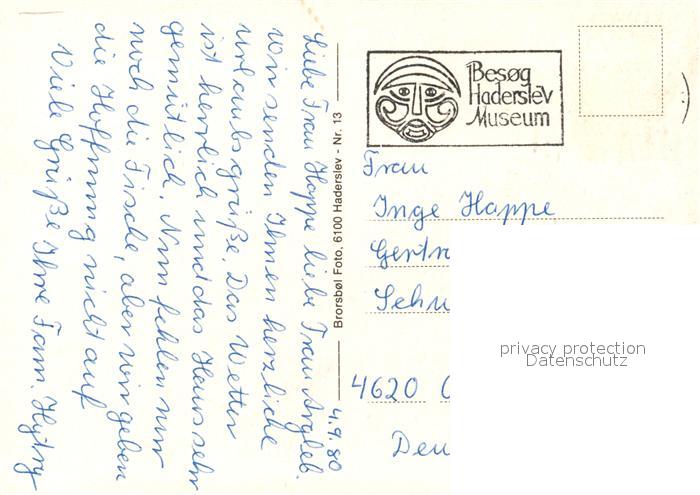 4.9.80
Liebe Frau Happe liebe Frau
wir senden Ihnen herzliche
Urlaubsgrüße. Das Wetter
ist herrlich und das Haus sehr
gemütlich. Nun fehlen nur
noch die Fische, aber wir geben
die Hoffnung nicht auf
Viele Grüße Ihre Fam.
Brorsbøl Foto, 6100 Haderslev - Nr. 13
Besøg
Haderslev
Museum
Frau
Inge Happe
4620
privacy protection
Datenschutz